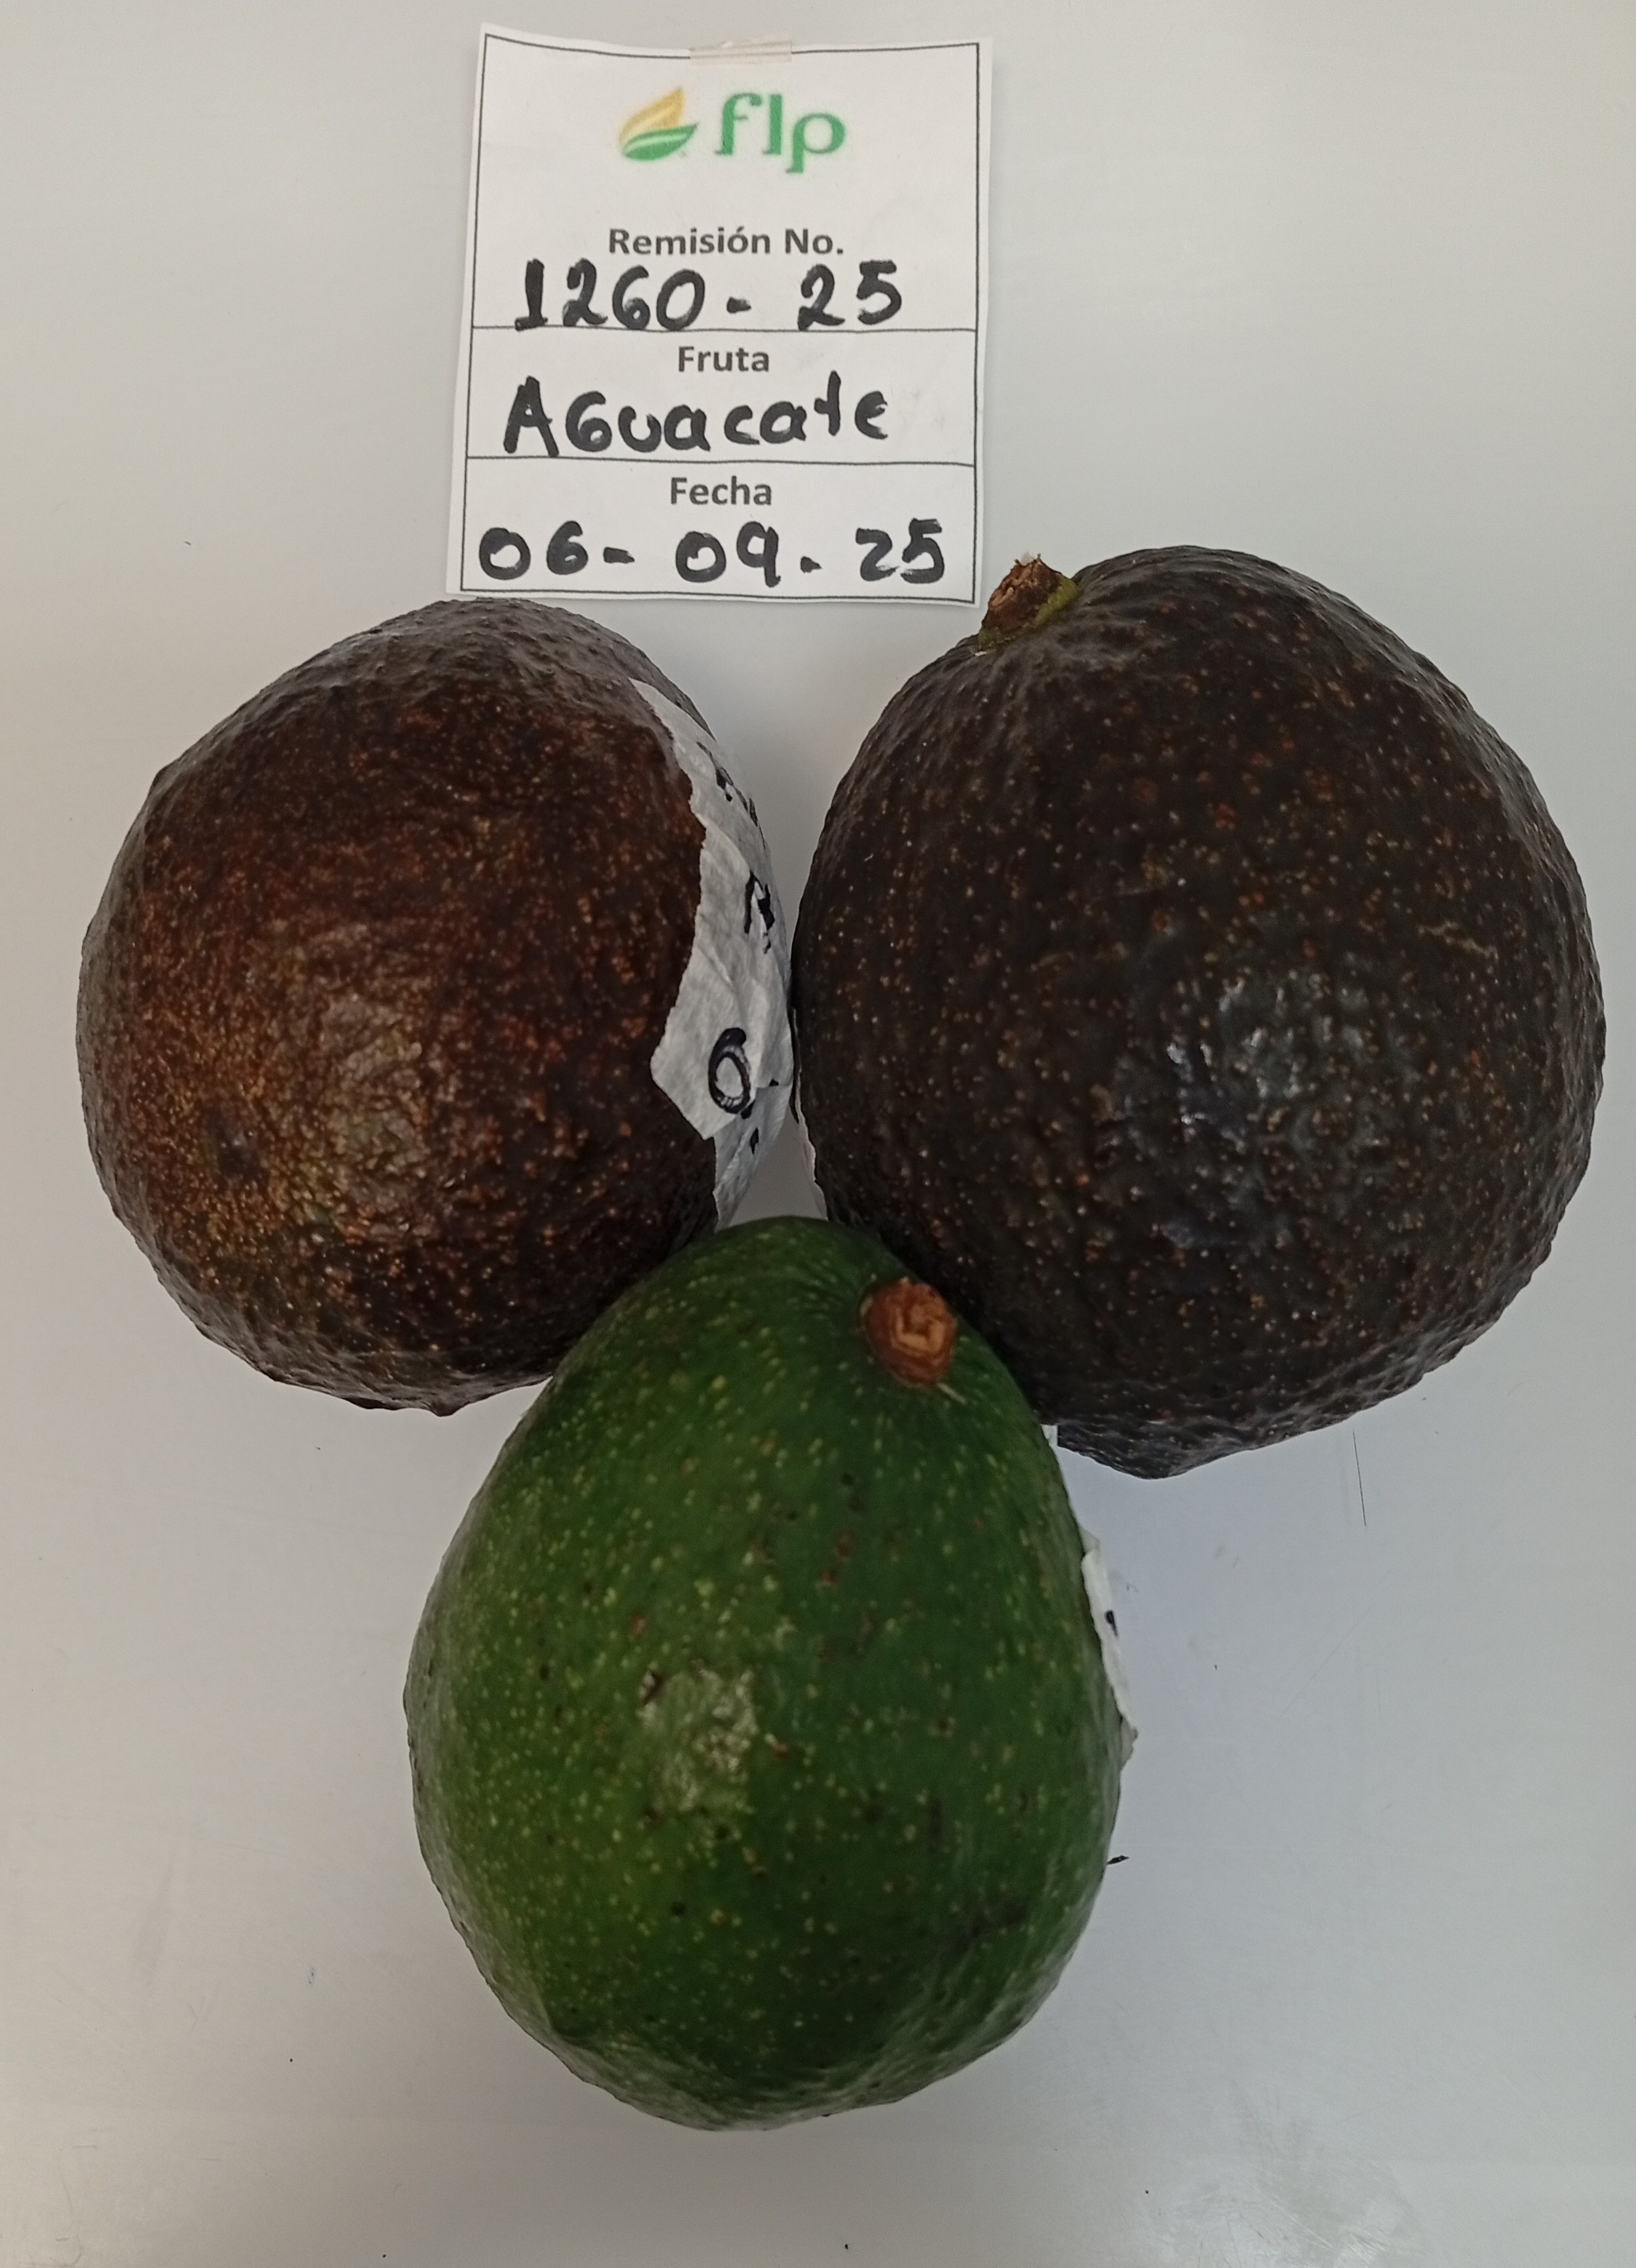 flp
Remisión No.
1260 - 25
Fruta
AGuacate
Fecha
06 - 09 - 25